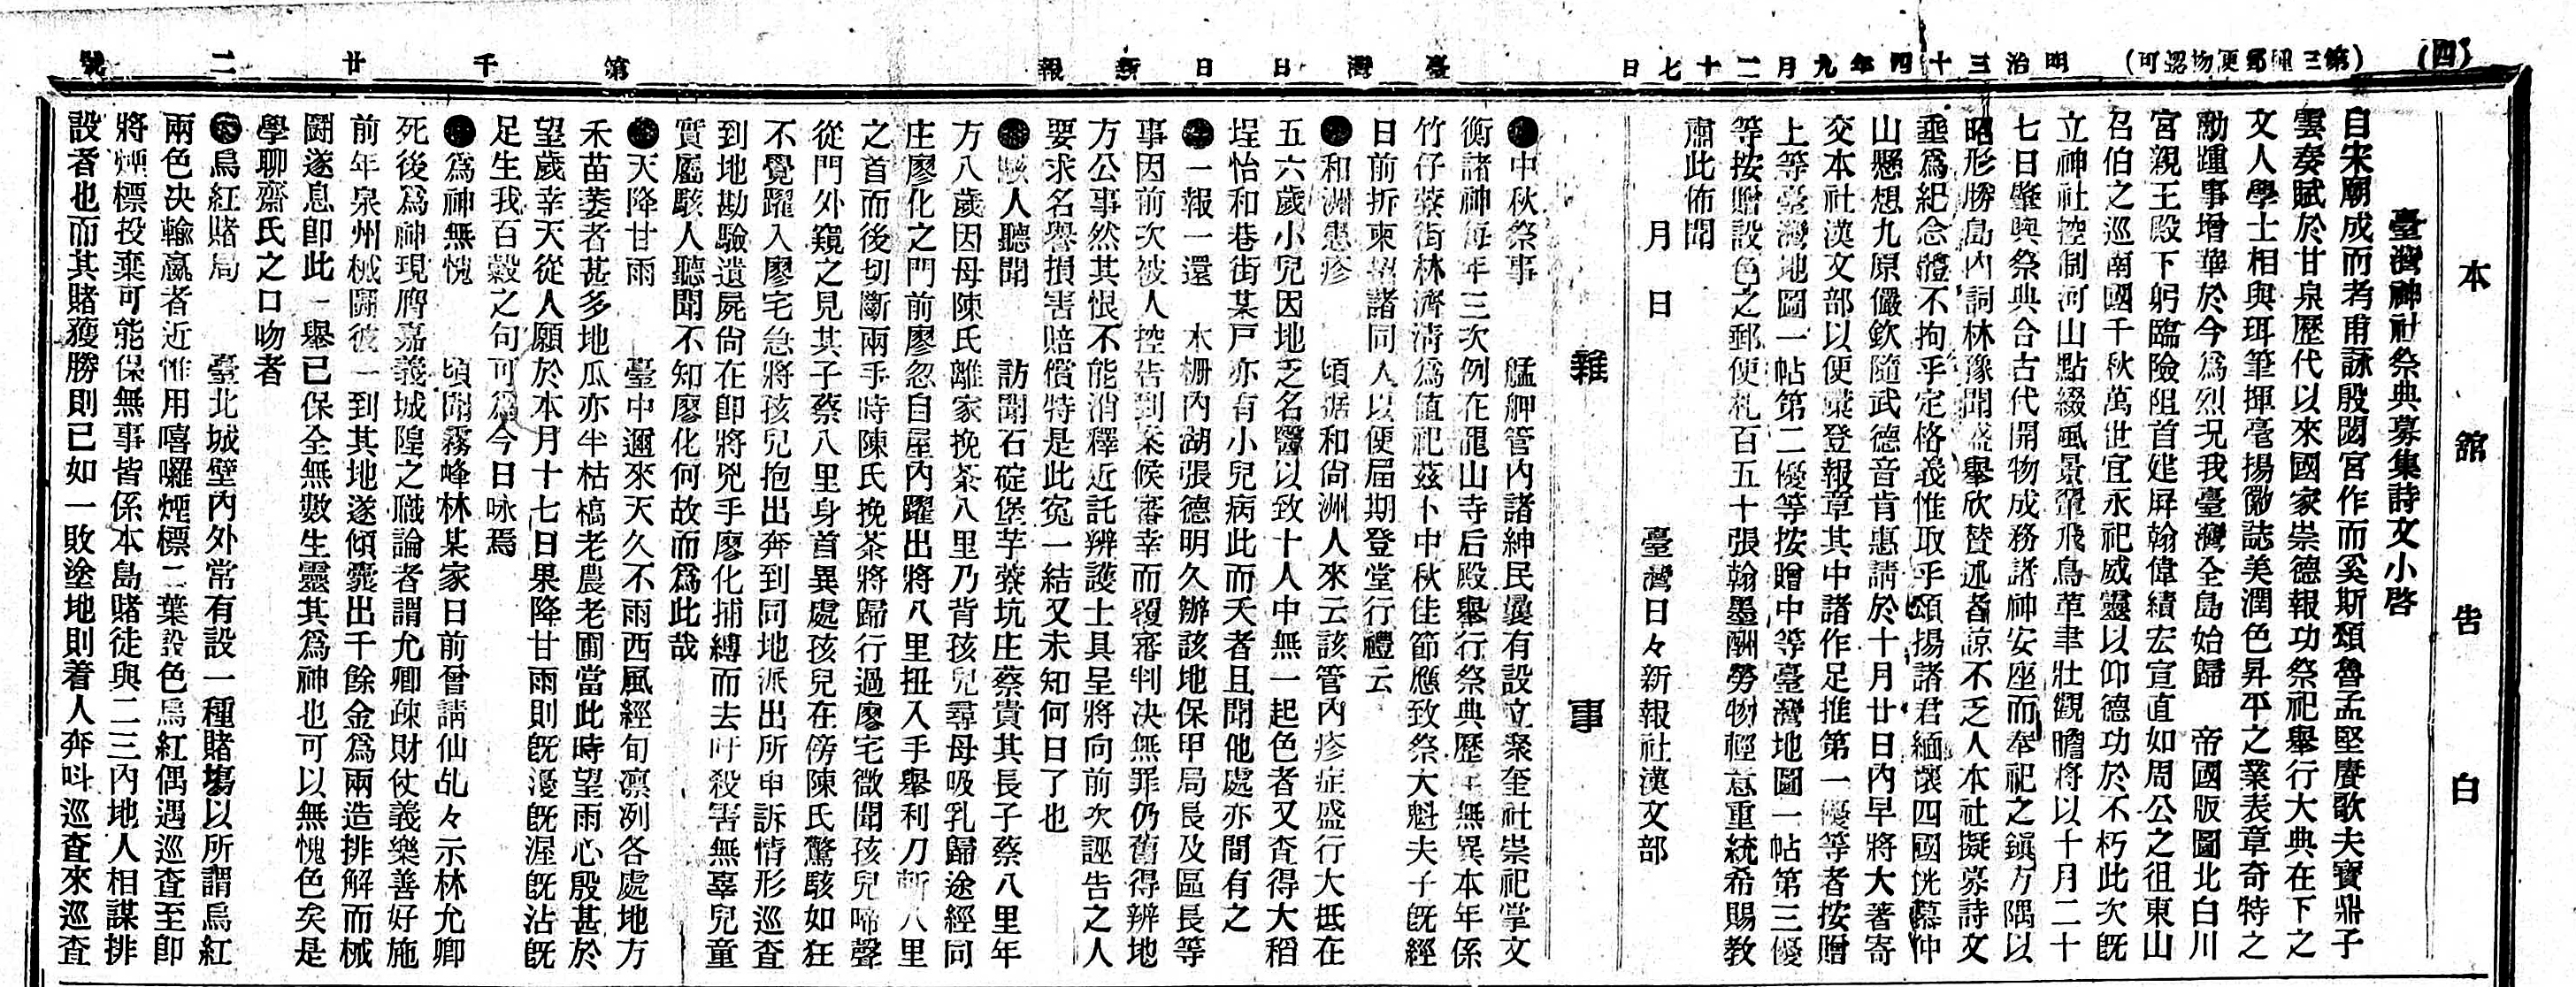 (四)
(第三種郵便物認可)
明治三十四年九月二十七日
臺灣日日新報
第千廿二號
本館告白
臺灣神社祭典募集詩文小啓
自宋廟成而考甫詠殷閟宮作而奚斯頌魯孟堅賡歌夫寶鼎子
雲奏賦於甘泉歷代以來國家崇德報功祭祀舉行大典在下之
文人學士相與珥筆揮毫揚徽誌美潤色昇平之業表章奇特之
勳踵事增華於今爲烈況我臺灣全島始歸 帝國版圖北白川
宮親王殿下躬臨險阻首建屛翰偉績宏宣直如周公之徂東山
召伯之巡南國千秋萬世宜永祀威靈以仰德功於不朽此次旣
立神社控制河山點綴風景翬飛鳥革聿壯觀瞻將以十月二十
七日肇興祭典合古代開物成務諸神安座而奉祀之鎭方隅以
昭形勝島內詞林豫聞盛舉欣贊述者諒不乏人本社擬募詩文
垂爲紀念體不拘乎定格義惟取乎頌揚諸君緬懷四國恍慕仲
山懸想九原儼欽隨武德音肯惠請於十月廿日內早將大著寄
交本社漢文部以便彙登報章其中諸作足推第一優等者按贈
上等臺灣地圖一帖第二優等按贈中等臺灣地圖一帖第三優
等按贈設色之郵便札百五十張翰墨酬勞物輕意重統希賜敎
肅此佈聞
月 日
臺灣日々新報社漢文部
雜事
●中秋祭事 艋舺管內諸紳民曩有設立聚奎社崇祀掌文
衡諸神每年三次例在龍山寺后殿舉行祭典歷年無異本年係
竹仔藔街林濟淸爲値祀茲卜中秋佳節應致祭大魁夫子旣經
日前折柬招諸同人以便屆期登堂行禮云
●和洲患疹 頃据和尙洲人來云該管內疹症盛行大抵在
五六歲小兒因地乏名醫以致十人中無一起色者又查得大稻
埕怡和巷街某戶亦有小兒病此而夭者且聞他處亦間有之
●一報一還 木柵內湖張德明久辦該地保甲局長及區長等
事因前次被人控告到案候審幸而覆審判决無罪仍舊得辨地
方公事然其恨不能消釋近託辨護士具呈將向前次誣告之人
要求名譽損害賠償特是此寃一結又未知何日了也
●駭人聽聞 訪聞石碇堡芋藔坑庄蔡貴其長子蔡八里年
方八歲因母陳氏離家挽茶八里乃背孩兒尋母吸乳歸途經同
庄廖化之門前廖忽自屋內躍出將八里扭入手舉利刀斬八里
之首而後切斷兩手時陳氏挽茶將歸行過廖宅微聞孩兒啼聲
從門外窺之見其子蔡八里身首異處孩兒在傍陳氏驚駭如狂
不覺躍入廖宅急將孩兒抱出奔到同地派出所申訴情形巡査
到地勘驗遺屍尙在卽將兇手廖化捕縛而去吁殺害無辜兒童
實屬駭人聽聞不知廖化何故而爲此哉
●天降甘雨 臺中邇來天久不雨西風經旬凛冽各處地方
禾苗萎者甚多地瓜亦半枯槁老農老圃當此時望雨心殷甚於
望歲幸天從人願於本月十七日果降甘雨則旣漫旣渥旣沾旣
足生我百穀之句可爲今日咏焉
●爲神無愧 頃聞霧峰林某家日前曾請仙乩々示林允卿
死後爲神現膺嘉義城隍之職論者謂允卿疎財仗義樂善好施
前年泉州械鬪彼一到其地遂傾囊出千餘金爲兩造排解而械
鬪遂息卽此一舉已保全無數生靈其爲神也可以無愧色矣是
學聊齋氏之口吻者
●烏紅賭局 臺北城壁內外常有設一種賭塲以所謂烏紅
兩色决輸贏者近惟用嘻囉煙標二葉設色烏紅偶遇巡查至卽
將煙標投棄可能保無事皆係本島賭徒與二三內地人相謀排
設者也而其賭獲勝則已如一敗塗地則着人奔呌巡査來巡査